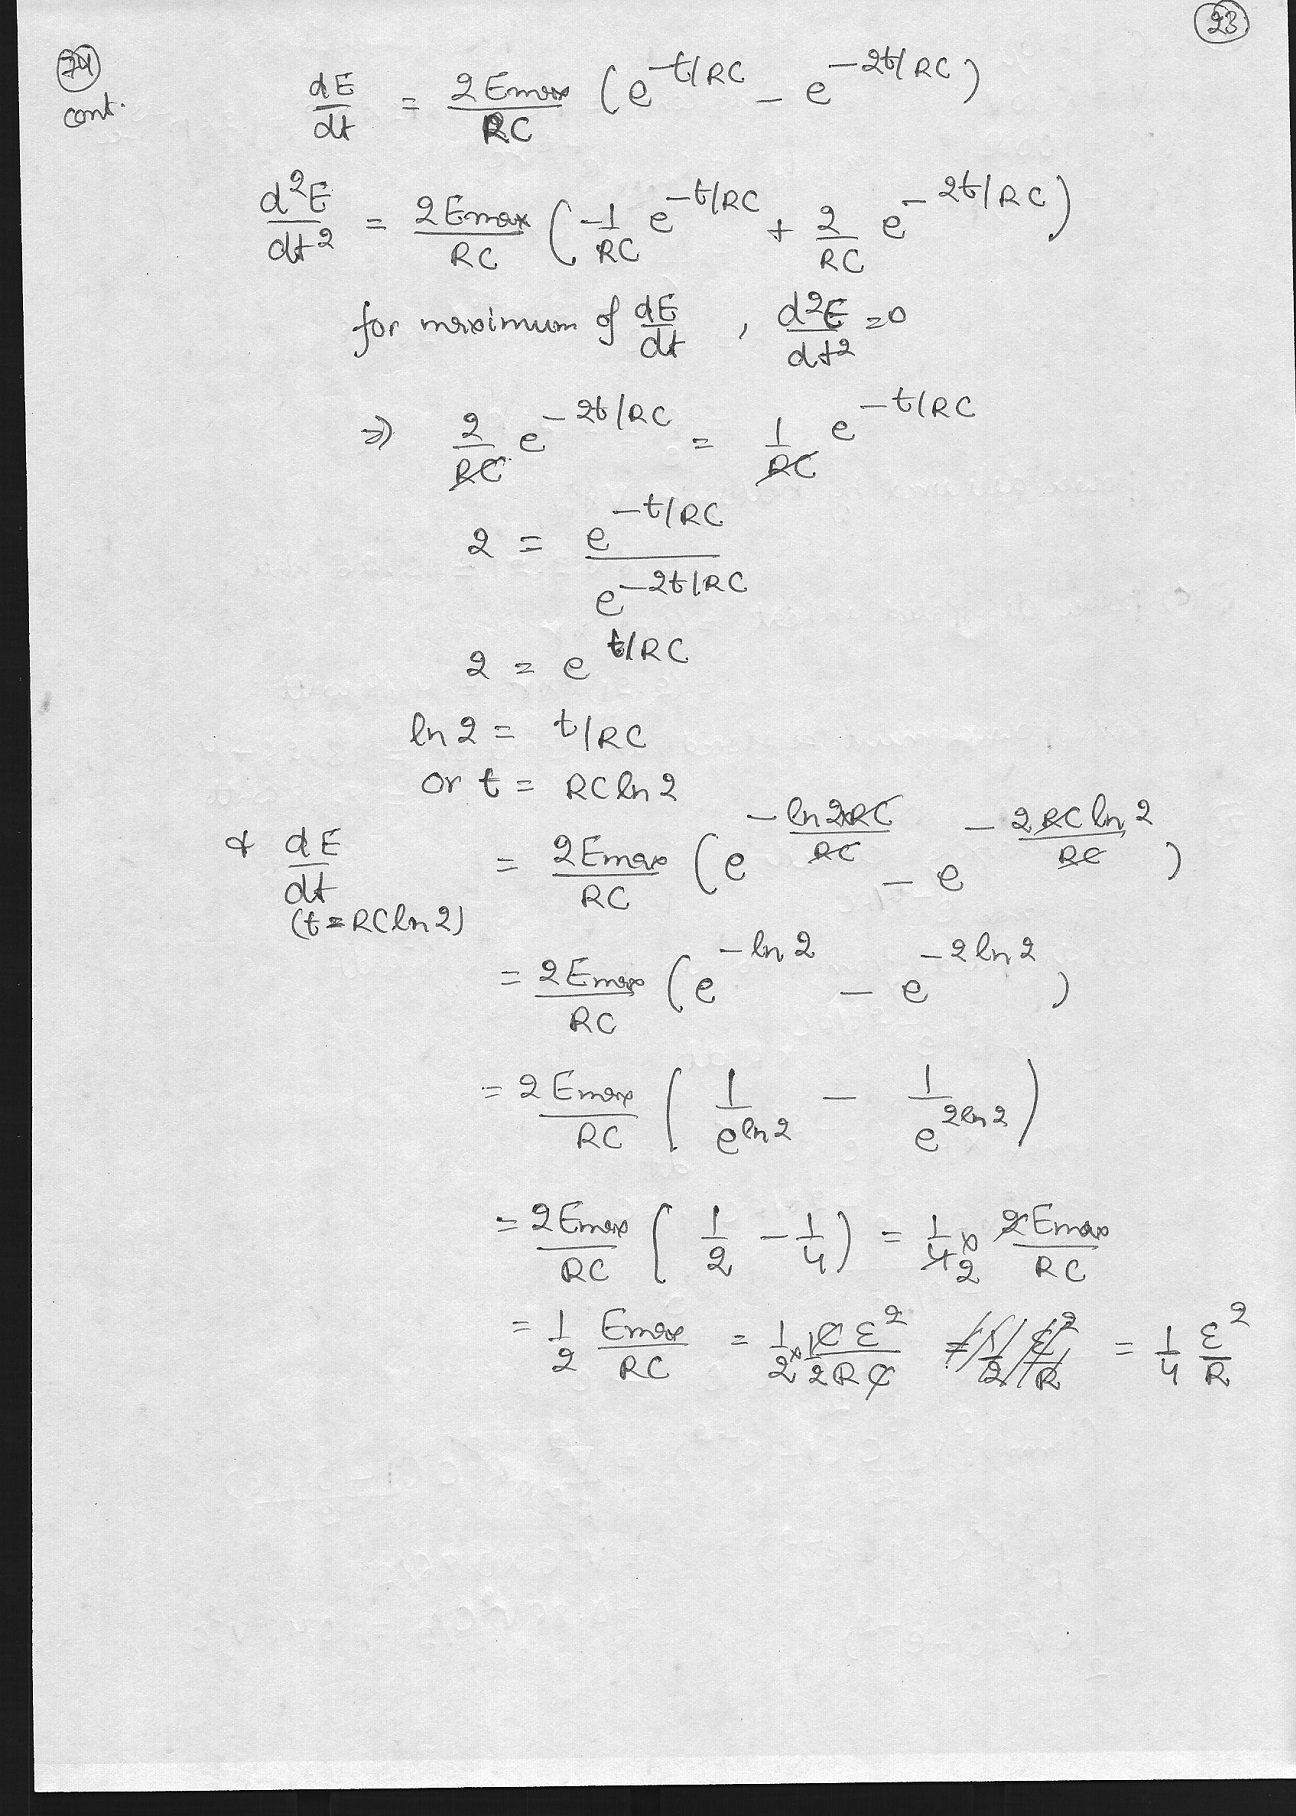 23
74
cont.
dE/dt = 2Emax/RC (e^-t/RC - e^-2t/RC)
d²E/dt² = 2Emax/RC (-1/RC e^-t/RC + 2/RC e^-2t/RC)
for maximum of dE/dt , d²E/dt² = 0
⇒ 2/RC e^-2t/RC = 1/RC e^-t/RC
2 = e^-t/RC / e^-2t/RC
2 = e^t/RC
ln 2 = t/RC
or t = RC ln 2
& dE/dt (t = RC ln 2) = 2Emax/RC (e^-ln2×RC/RC - e^-2RC ln 2/RC)
= 2Emax/RC (e^-ln 2 - e^-2 ln 2)
= 2Emax/RC (1/e^ln 2 - 1/e^2 ln 2)
= 2Emax/RC (1/2 - 1/4) = 1/4 2 × 2Emax/RC
= 1/2 Emax/RC = 1/2 × 1Cε²/2RC = 1/2 ε²/R = 1/4 ε²/R